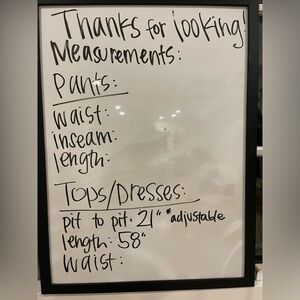 Thanks for looking!
Measurements:
Pants:
waist:
inseam:
length:
Tops/Dresses:
pit to pit: 21" *adjustable
length: 58"
waist: